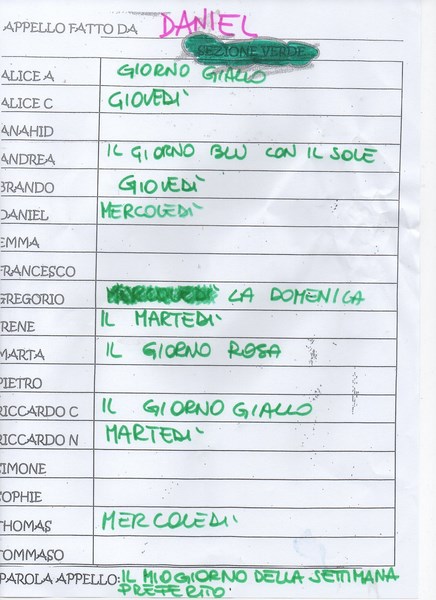 APPELLO FATTO DA DANIEL
SEZIONE VERDE
ALICE A GIORNO GIALLO
ALICE C GIOVEDÌ
ANAHID
ANDREA IL GIORNO BLU CON IL SOLE
BRANDO GIOVEDÌ
DANIEL MERCOLEDÌ
EMMA
FRANCESCO
GREGORIO MERCOLEDÌ LA DOMENICA
IRENE IL MARTEDÌ
MARTA IL GIORNO ROSA
PIETRO
RICCARDO C IL GIORNO GIALLO
RICCARDO N MARTEDÌ
SIMONE
SOPHIE
THOMAS MERCOLEDÌ
TOMMASO
PAROLA APPELLO: IL MIO GIORNO DELLA SETTIMANA
PREFERITO